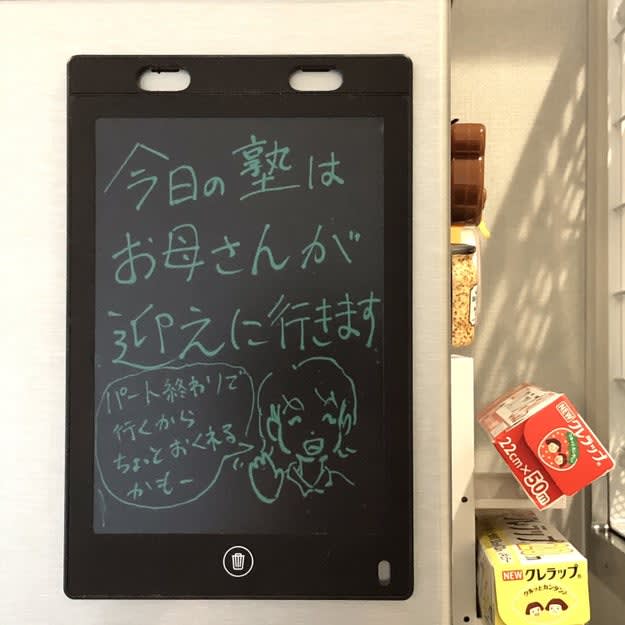 今日の塾は
お母さんが
迎えに行きます
パート終わりで
行くから
ちょっとおくれる
かもー
NEW クレラップ®
22cm×50m
NEW クレラップ®
クルッとカンタン♪